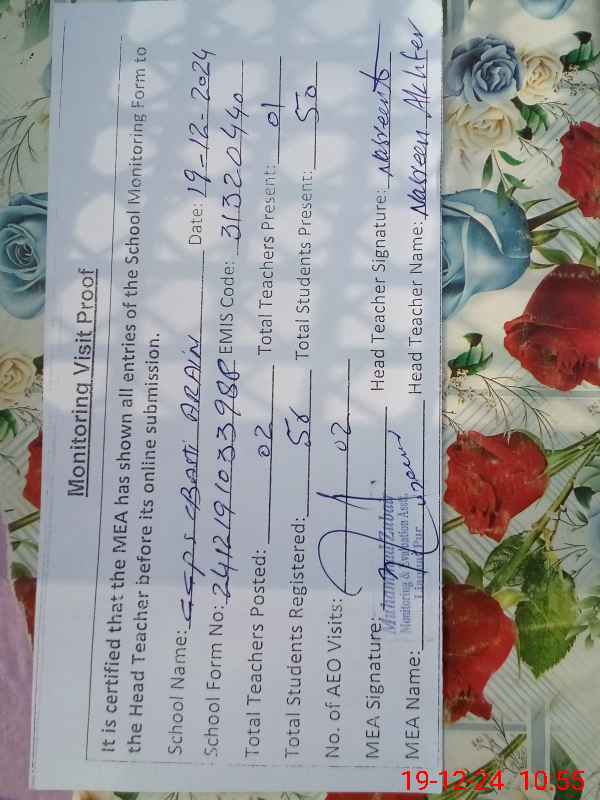 Monitoring Visit Proof
It is certified that the MEA has shown all entries of the School Monitoring Form to
the Head Teacher before its online submission.
School Name: GGPS Basti ARAIN Date: 19-12-2024
School Form No: EMIS Code: 31320440
Total Teachers Posted: 02 Total Teachers Present: 01
Total Students Registered: Total Students Present: 50
No. of AEO Visits: 02
MEA Signature: Head Teacher Signature:
Monitoring & Evaluation Asstt.
MEA Name: Head Teacher Name: Nasreen Akhter
19-12-24 10.55